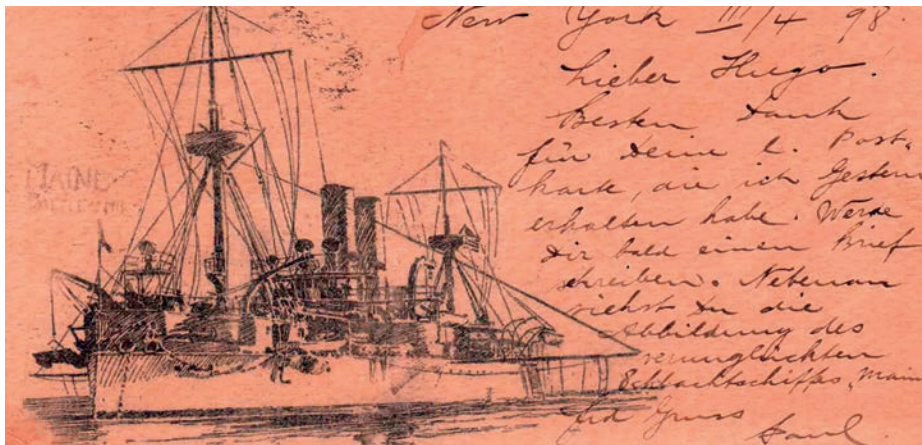 New York III/4 98.
Lieber Hugo.
Besten Dank
für Deine l. Post-
karte, die ich Gestern
erhalten habe. Werde
Dir bald einen Brief
schreiben. Nebenan
siehst Du die
Abbildung des
verunglückten
Schlachtschiffes „Main
Gruss
Paul.
MAINE